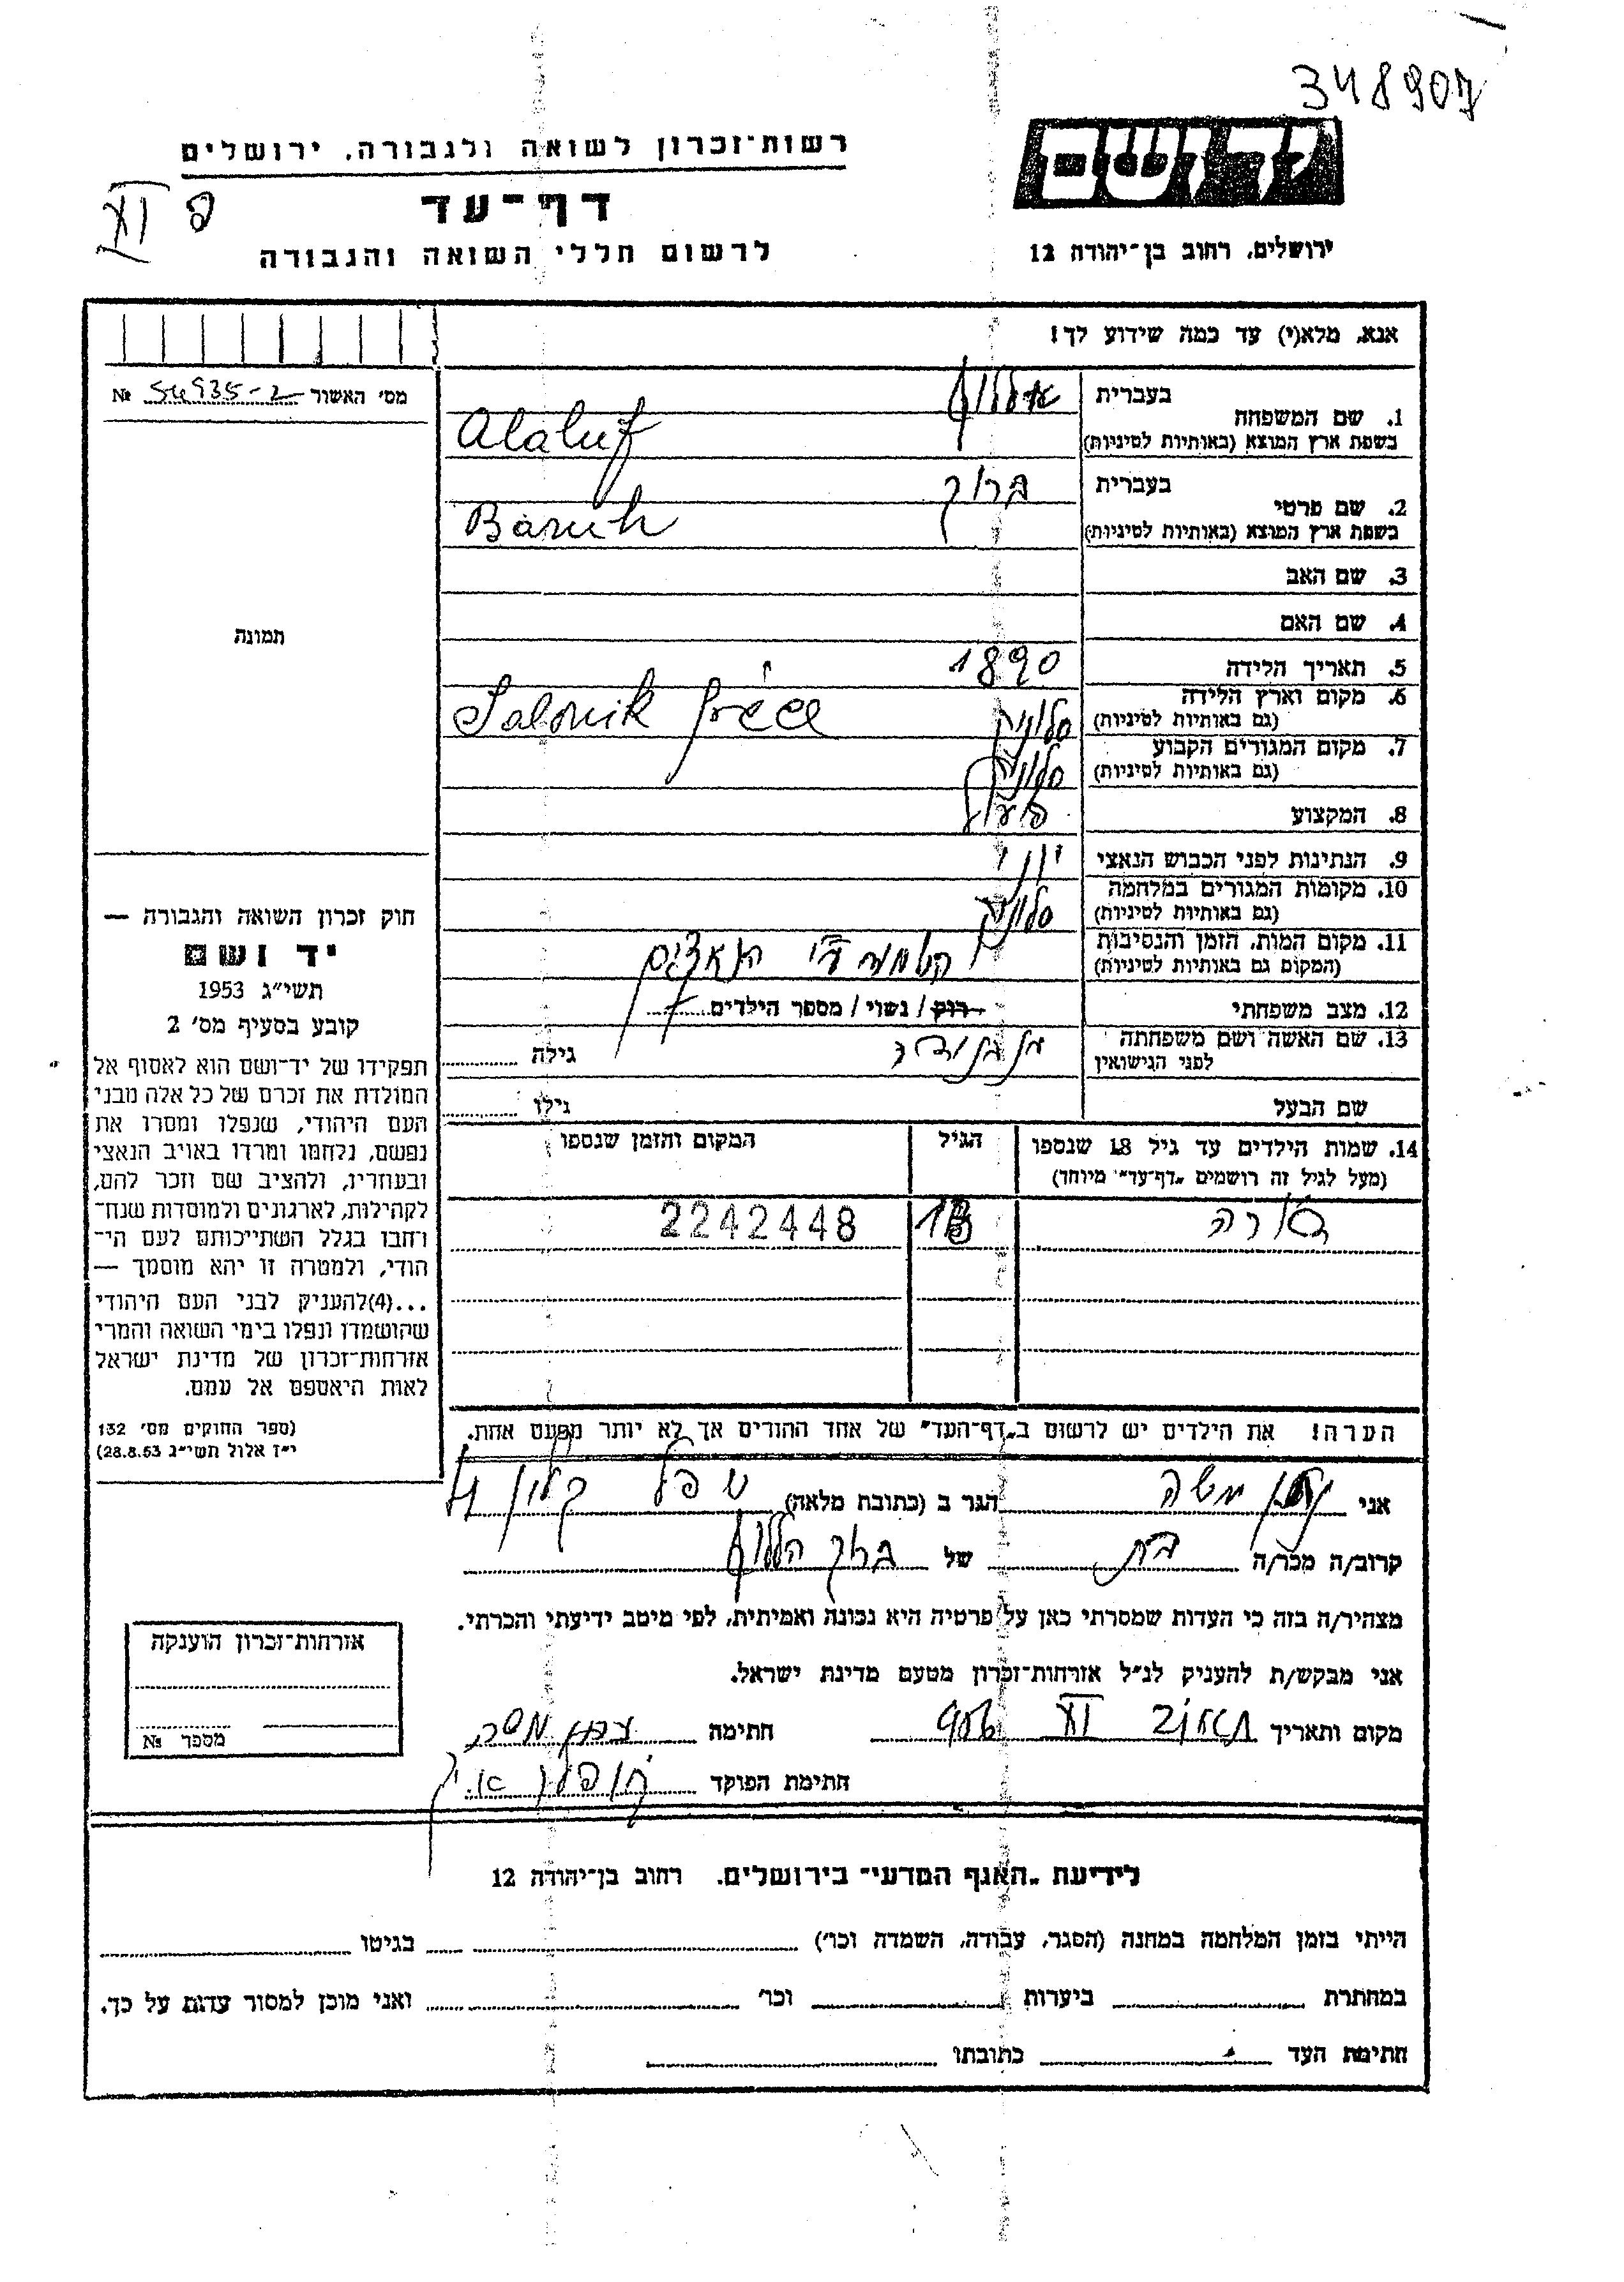 348907
יד ושם
רשות־זכרון לשואה ולגבורה, ירושלים
דף־עד
לרשום חללי השואה והגבורה
ירושלים, רחוב בן־יהודה 12
אנא, מלא(י) עד כמה שידוע לך!
מס׳ האשור 54935-2 №
1. שם המשפחה
בעברית אללוף
בשפת ארץ המוצא (באותיות לטיניות) Alaluf
2. שם פרטי
בעברית ברוך
בשפת ארץ המוצא (באותיות לטיניות) Baruh
3. שם האב
4. שם האם
5. תאריך הלידה 1890
6. מקום וארץ הלידה
(גם באותיות לטיניות) סלוניק Salonik Grèce
7. מקום המגורים הקבוע
(גם באותיות לטיניות) סלוניק
8. המקצוע פועל
9. הנתינות לפני הכבוש הנאצי יוני
10. מקומות המגורים במלחמה
(גם באותיות לטיניות) סלוניק
11. מקום המות, הזמן והנסיבות
(המקום גם באותיות לטיניות) הושמד ע״י הנאצים
12. מצב משפחתי רוק / נשוי / מספר הילדים
13. שם האשה ושם משפחתה
לפני הנישואין
גילה
שם הבעל
גילו
14. שמות הילדים עד גיל 18 שנספו
(מעל לגיל זה רושמים „דף־עד״ מיוחד)
הגיל
המקום והזמן שנספו
2242448
הערה! את הילדים יש לרשום ב„דף־העד״ של אחד ההורים אך לא יותר מפעם אחת.
תמונה
חוק זכרון השואה והגבורה —
יד ושם
תשי״ג 1953
קובע בסעיף מס׳ 2
תפקידו של יד־ושם הוא לאסוף אל
המולדת את זכרם של כל אלה מבני
העם היהודי, שנפלו ומסרו את
נפשם, נלחמו ומרדו באויב הנאצי
ובעוזריו, ולהציב שם וזכר להם,
לקהילות, לארגונים ולמוסדות שנח־
רחבו בגלל השתייכותם לעם הי־
הודי, ולמטרה זו יהא מוסמך —
...(4)להעניק לבני העם היהודי
שהושמדו ונפלו בימי השואה והמרי
אזרחות־זכרון של מדינת ישראל
לאות היאספם אל עמם.
(ספר החוקים מס׳ 132
י״ז אלול תשי״ג 28.8.53)
אני משה הגר ב (כתובת מלאה)
קרוב/ה מכר/ה בת של ברוך הללוף
מצהיר/ה בזה כי העדות שמסרתי כאן על פרטיה היא נכונה ואמיתית, לפי מיטב ידיעתי והכרתי.
אני מבקש/ת להעניק לנ״ל אזרחות־זכרון מטעם מדינת ישראל.
מקום ותאריך חתימה
חתימת הפוקד
אזרחות־זכרון הוענקה
מספר №
לידיעת „האגף המדעי״ בירושלים. רחוב בן־יהודה 12
הייתי בזמן המלחמה במחנה (הסגר, עבודה, השמדה וכו׳) בגיטו
במחתרת ביערות וכו׳ ואני מוכן למסור עדות על כך.
חתימת העד כתובתו